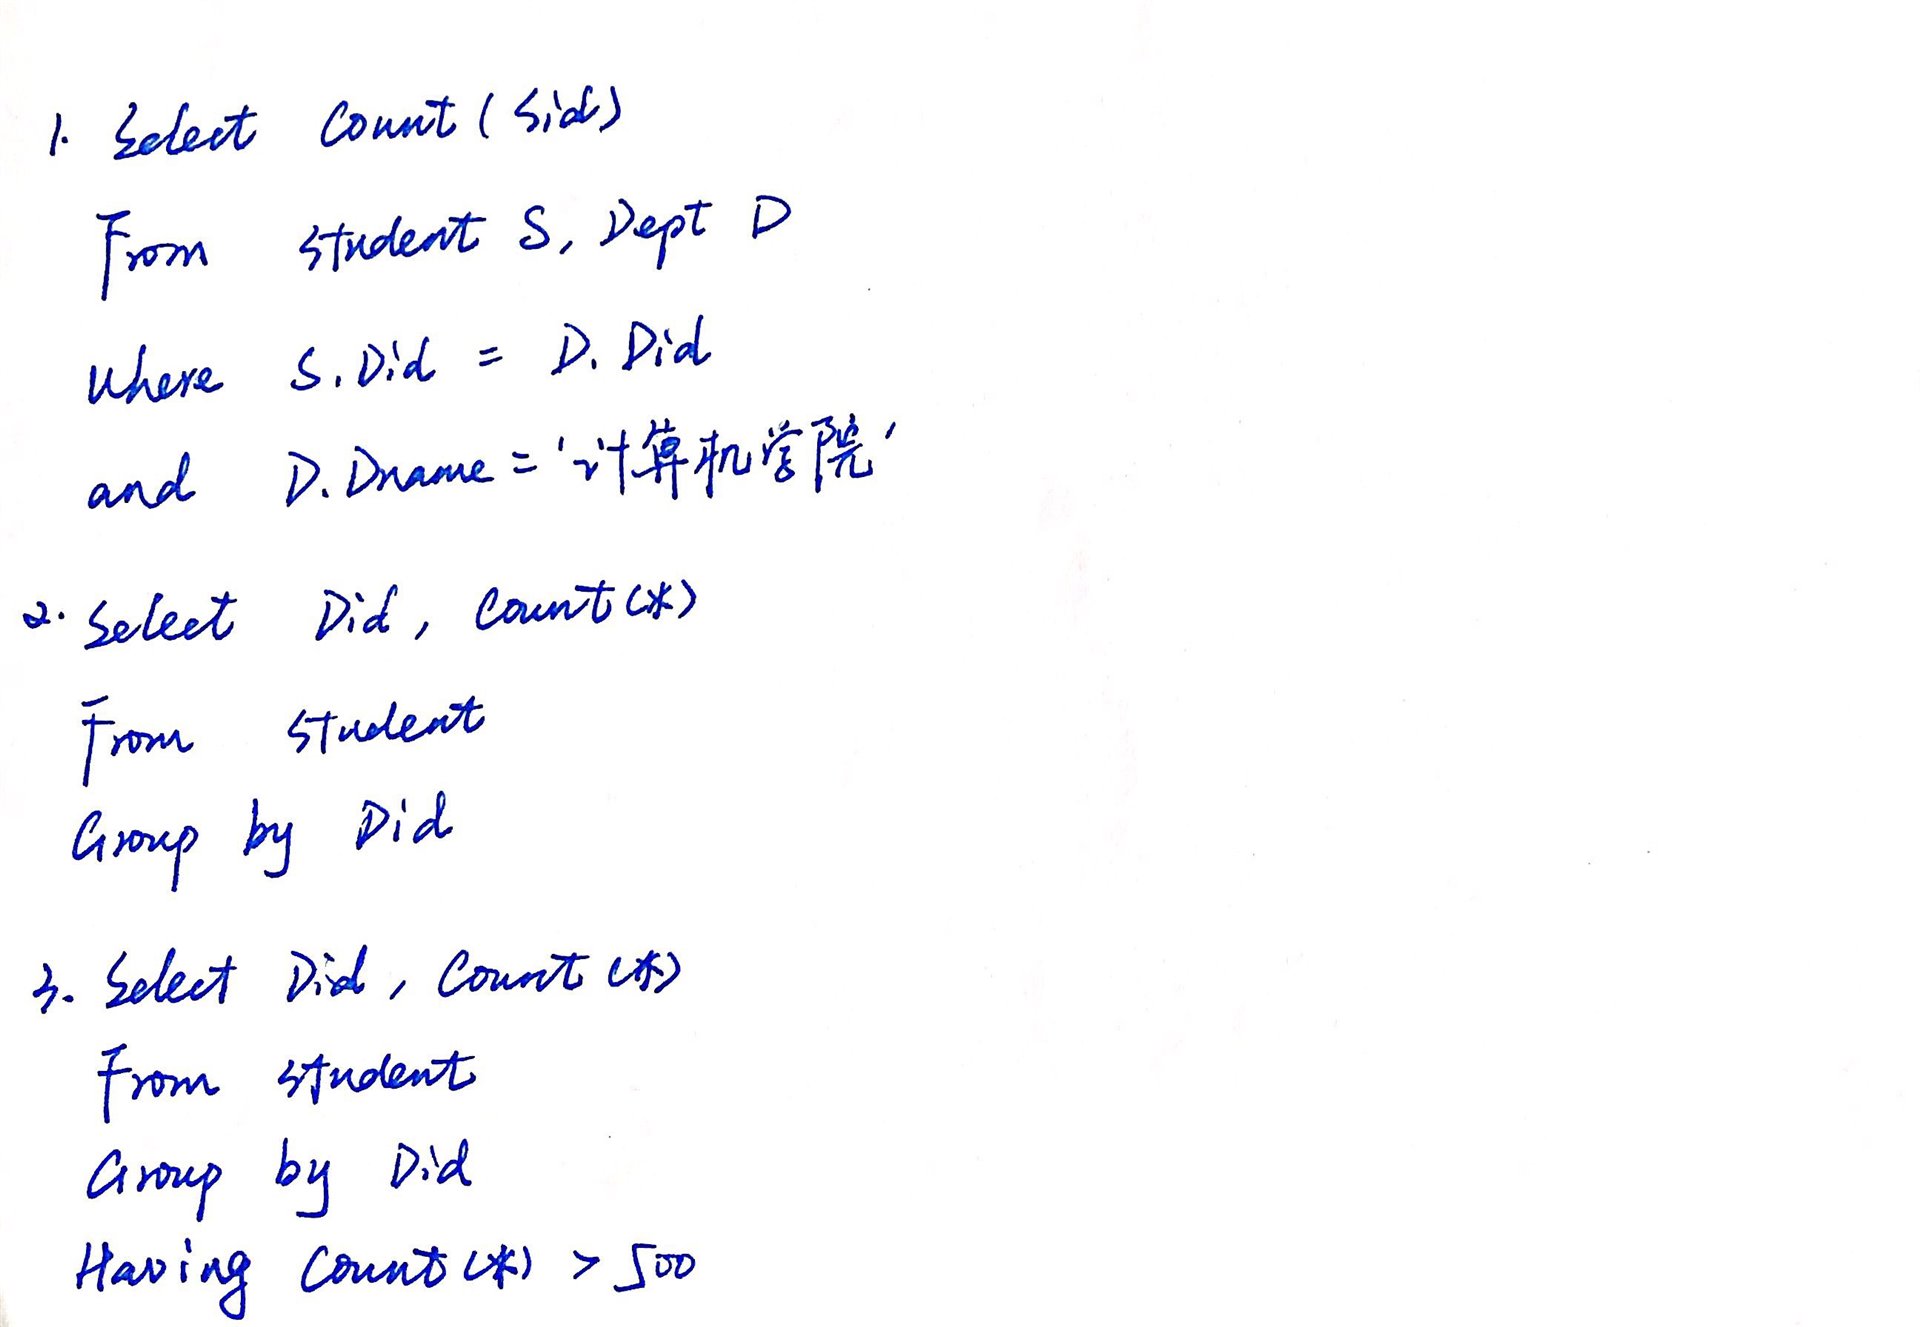 1. Select Count(Sid)
From Student S, Dept D
Where S.Did = D.Did
and D.Dname = '计算机学院'
2. Select Did, Count(*)
From Student
Group by Did
3. Select Did, Count(*)
From Student
Group by Did
Having Count(*) > 500